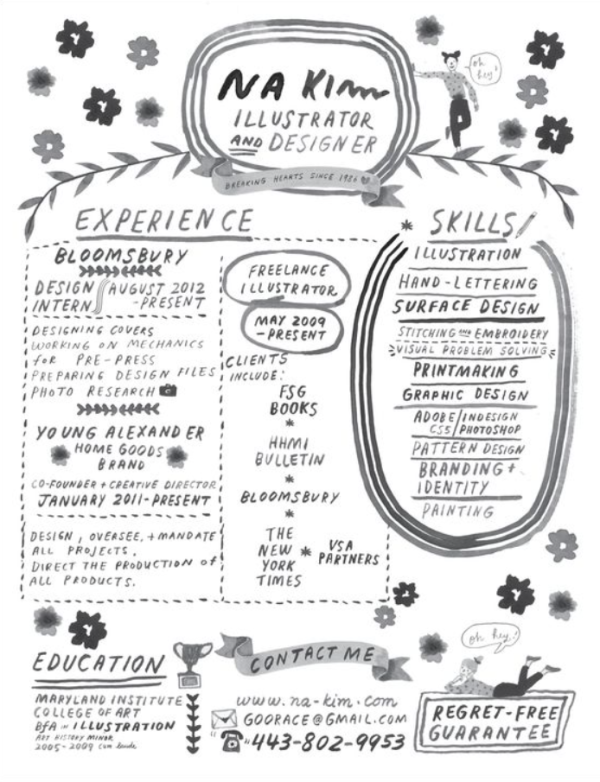 NA KIM
ILLUSTRATOR
AND DESIGNER
BREAKING HEARTS SINCE 1986
oh hey!
EXPERIENCE
BLOOMSBURY
DESIGN INTERN
AUGUST 2012 -PRESENT
DESIGNING COVERS
WORKING ON MECHANICS
for PRE-PRESS
PREPARING DESIGN FILES
PHOTO RESEARCH
YOUNG ALEXANDER
HOME GOODS
BRAND
CO-FOUNDER + CREATIVE DIRECTOR
JANUARY 2011-PRESENT
DESIGN, OVERSEE, + MANDATE
ALL PROJECTS.
DIRECT THE PRODUCTION of
ALL PRODUCTS.
FREELANCE
ILLUSTRATOR
MAY 2009
-PRESENT
CLIENTS
INCLUDE:
FSG
BOOKS
*
HHMI
BULLETIN
*
BLOOMSBURY
*
THE
NEW
YORK
TIMES
* VSA
PARTNERS
* SKILLS
ILLUSTRATION
HAND-LETTERING
SURFACE DESIGN
STITCHING AND EMBROIDERY
VISUAL PROBLEM SOLVING
PRINTMAKING
GRAPHIC DESIGN
ADOBE CS5 / INDESIGN PHOTOSHOP
PATTERN DESIGN
BRANDING +
IDENTITY
PAINTING
EDUCATION
MARYLAND INSTITUTE
COLLEGE OF ART
BFA in ILLUSTRATION
ART HISTORY MINOR
2005-2009 Cum laude
CONTACT ME
www.na-kim.com
GOORACE@GMAIL.COM
443-802-9953
oh hey!
REGRET-FREE
GUARANTEE